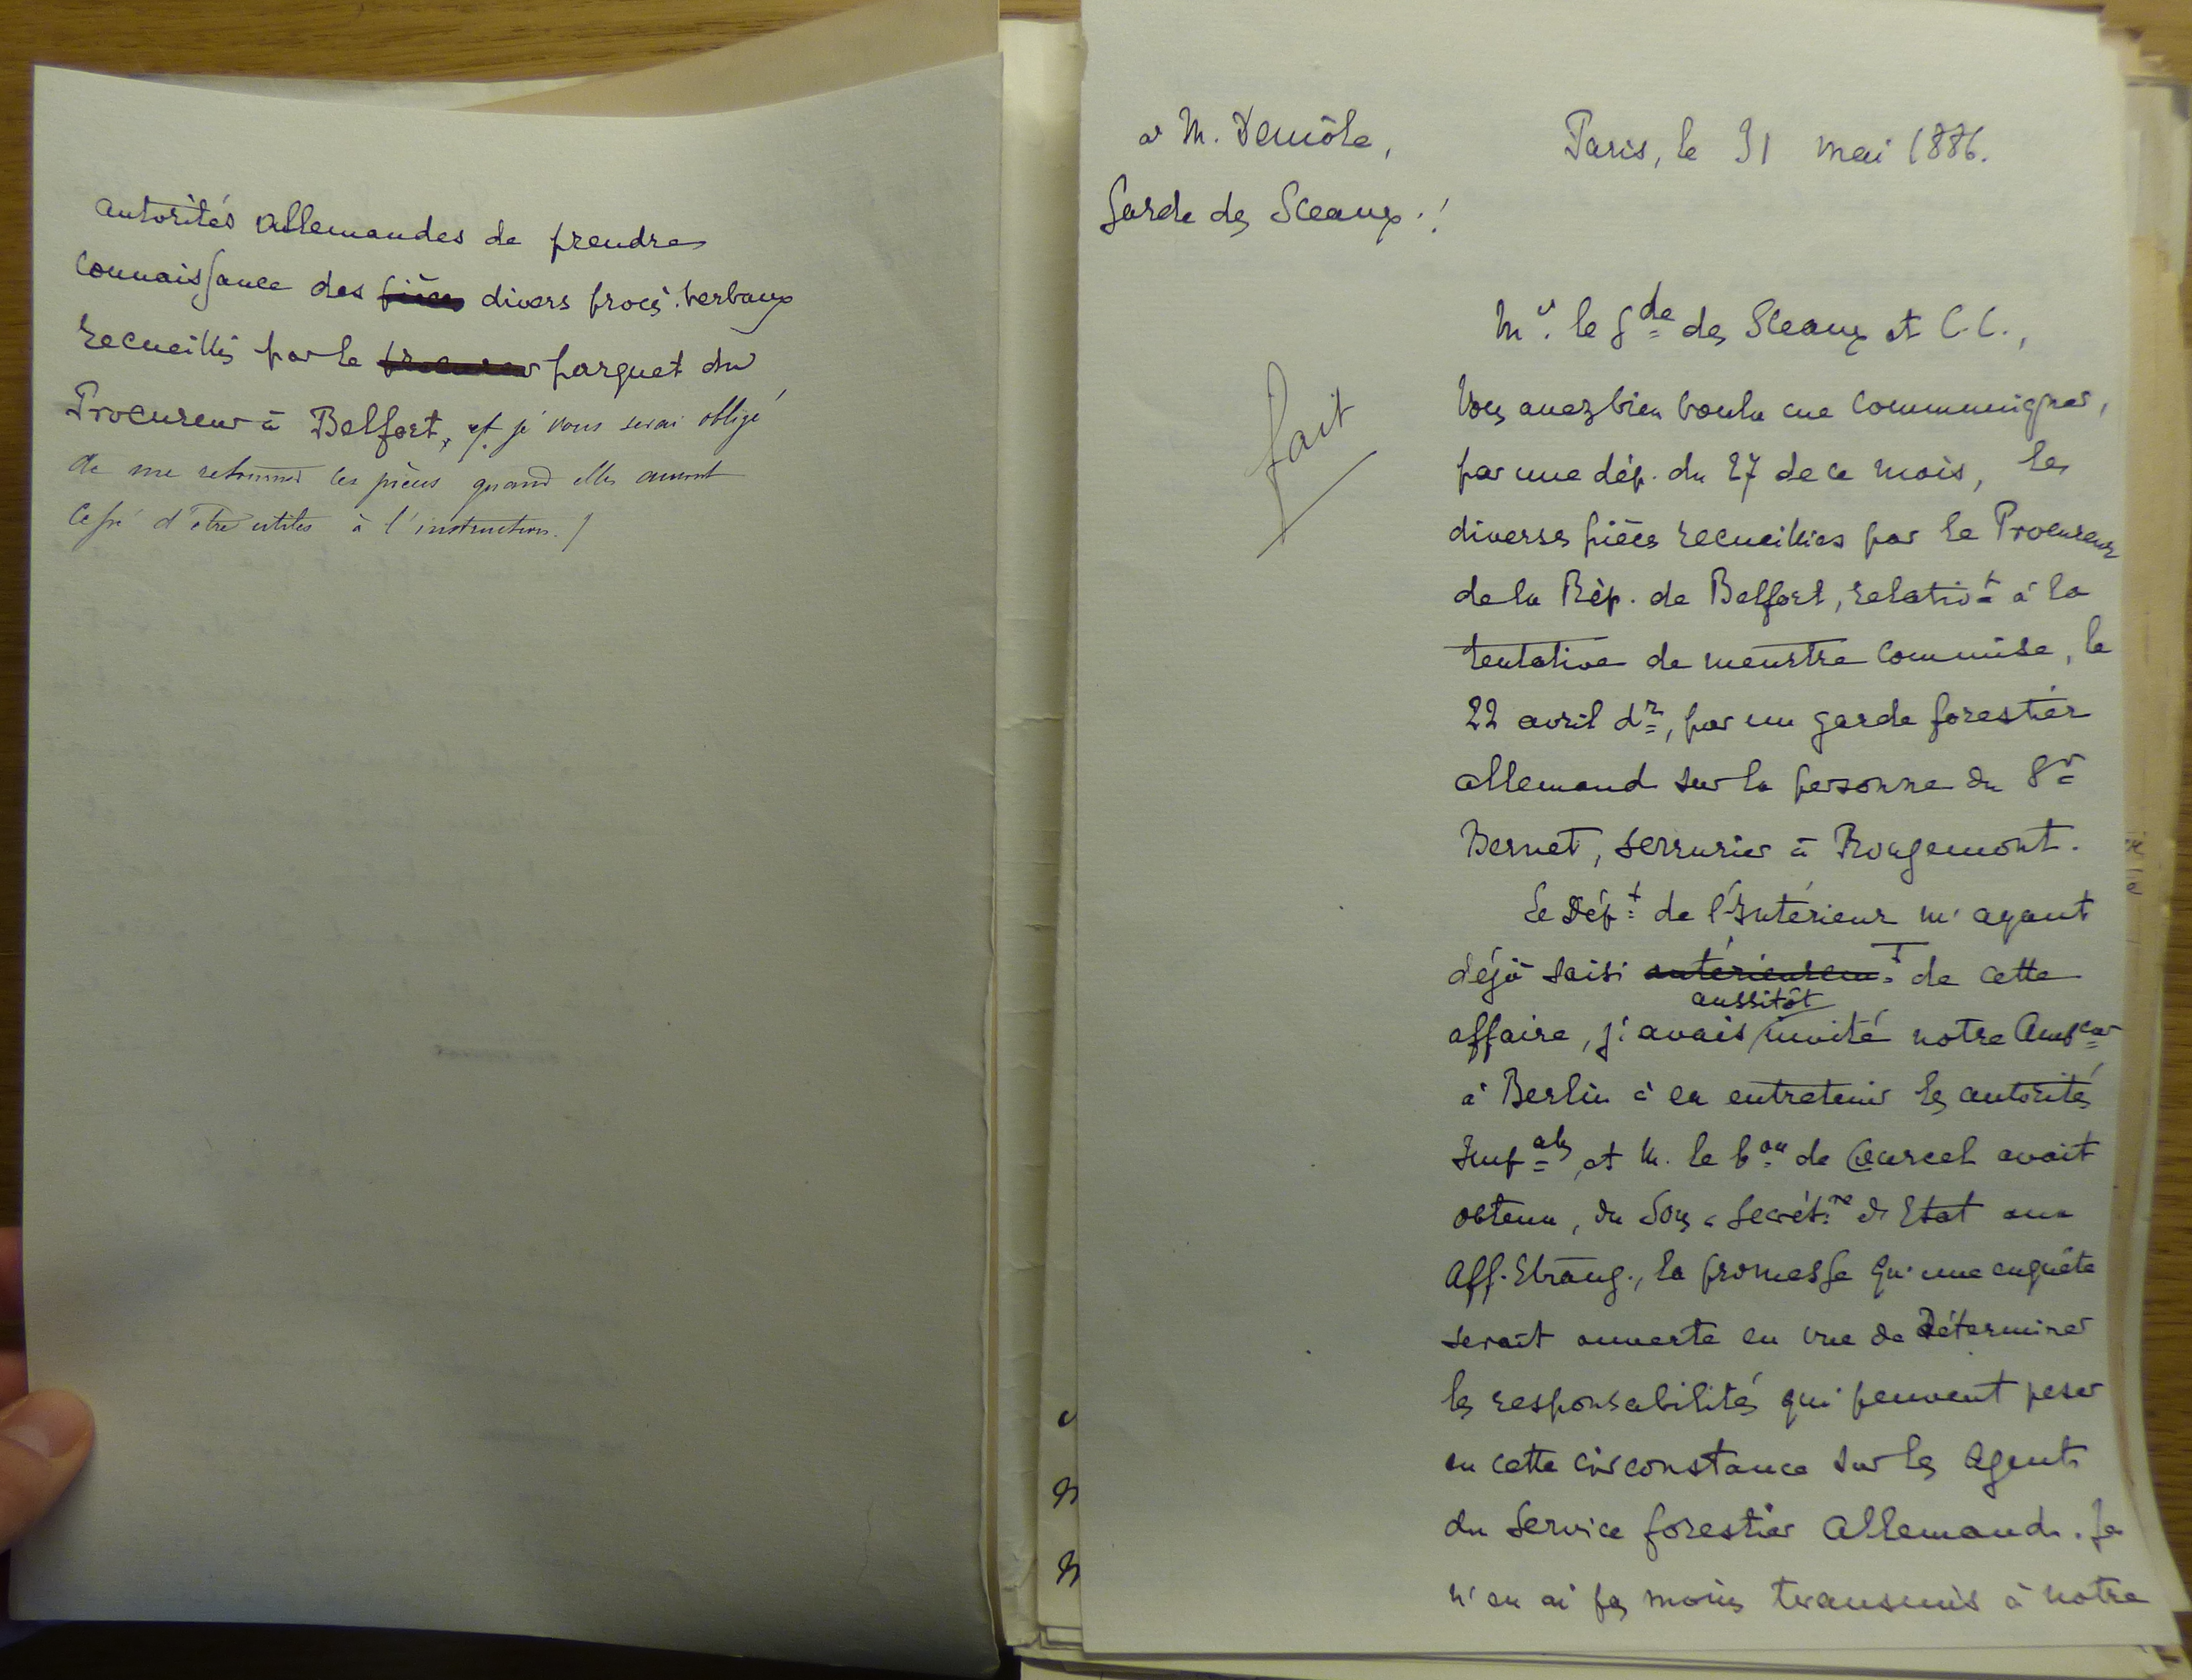 autorités allemandes de prendre
connaissance des pièces divers procès-verbaux
recueillis par le procureur parquet du
Procureur à Belfort, et je vous serai obligé
de me retourner ces pièces quand elles auront
cessé d'être utiles à l'instruction./
à M. Demôle,
Garde des Sceaux.!
Paris, le 31 mai 1886.
fait
Mr. le Gde des Sceaux et C.C.,
Vous avez bien voulu me communiquer,
par une dép. du 27 de ce mois, les
diverses pièces recueillies par le Procureur
de la Rép. de Belfort, relativt à la
tentative de meurtre commise, le
22 avril dr, par un garde forestier
allemand sur la personne du Sr
Bernet, serrurier à Rougemont.
Le Dépt de l'Intérieur m'ayant
déjà saisi antérieuremt de cette
aussitôt
affaire, j'avais invité notre Ambeur
à Berlin à en entretenir les autorités
Impales, et M. le bon de Courcel avait
obtenu, du Sous-Secrétre d'Etat aux
Aff. Etrang., la promesse qu'une enquête
serait ouverte en vue de déterminer
les responsabilités qui peuvent peser
en cette circonstance sur les agents
du service forestier allemand. Je
n'en ai pas moins transmis à notre